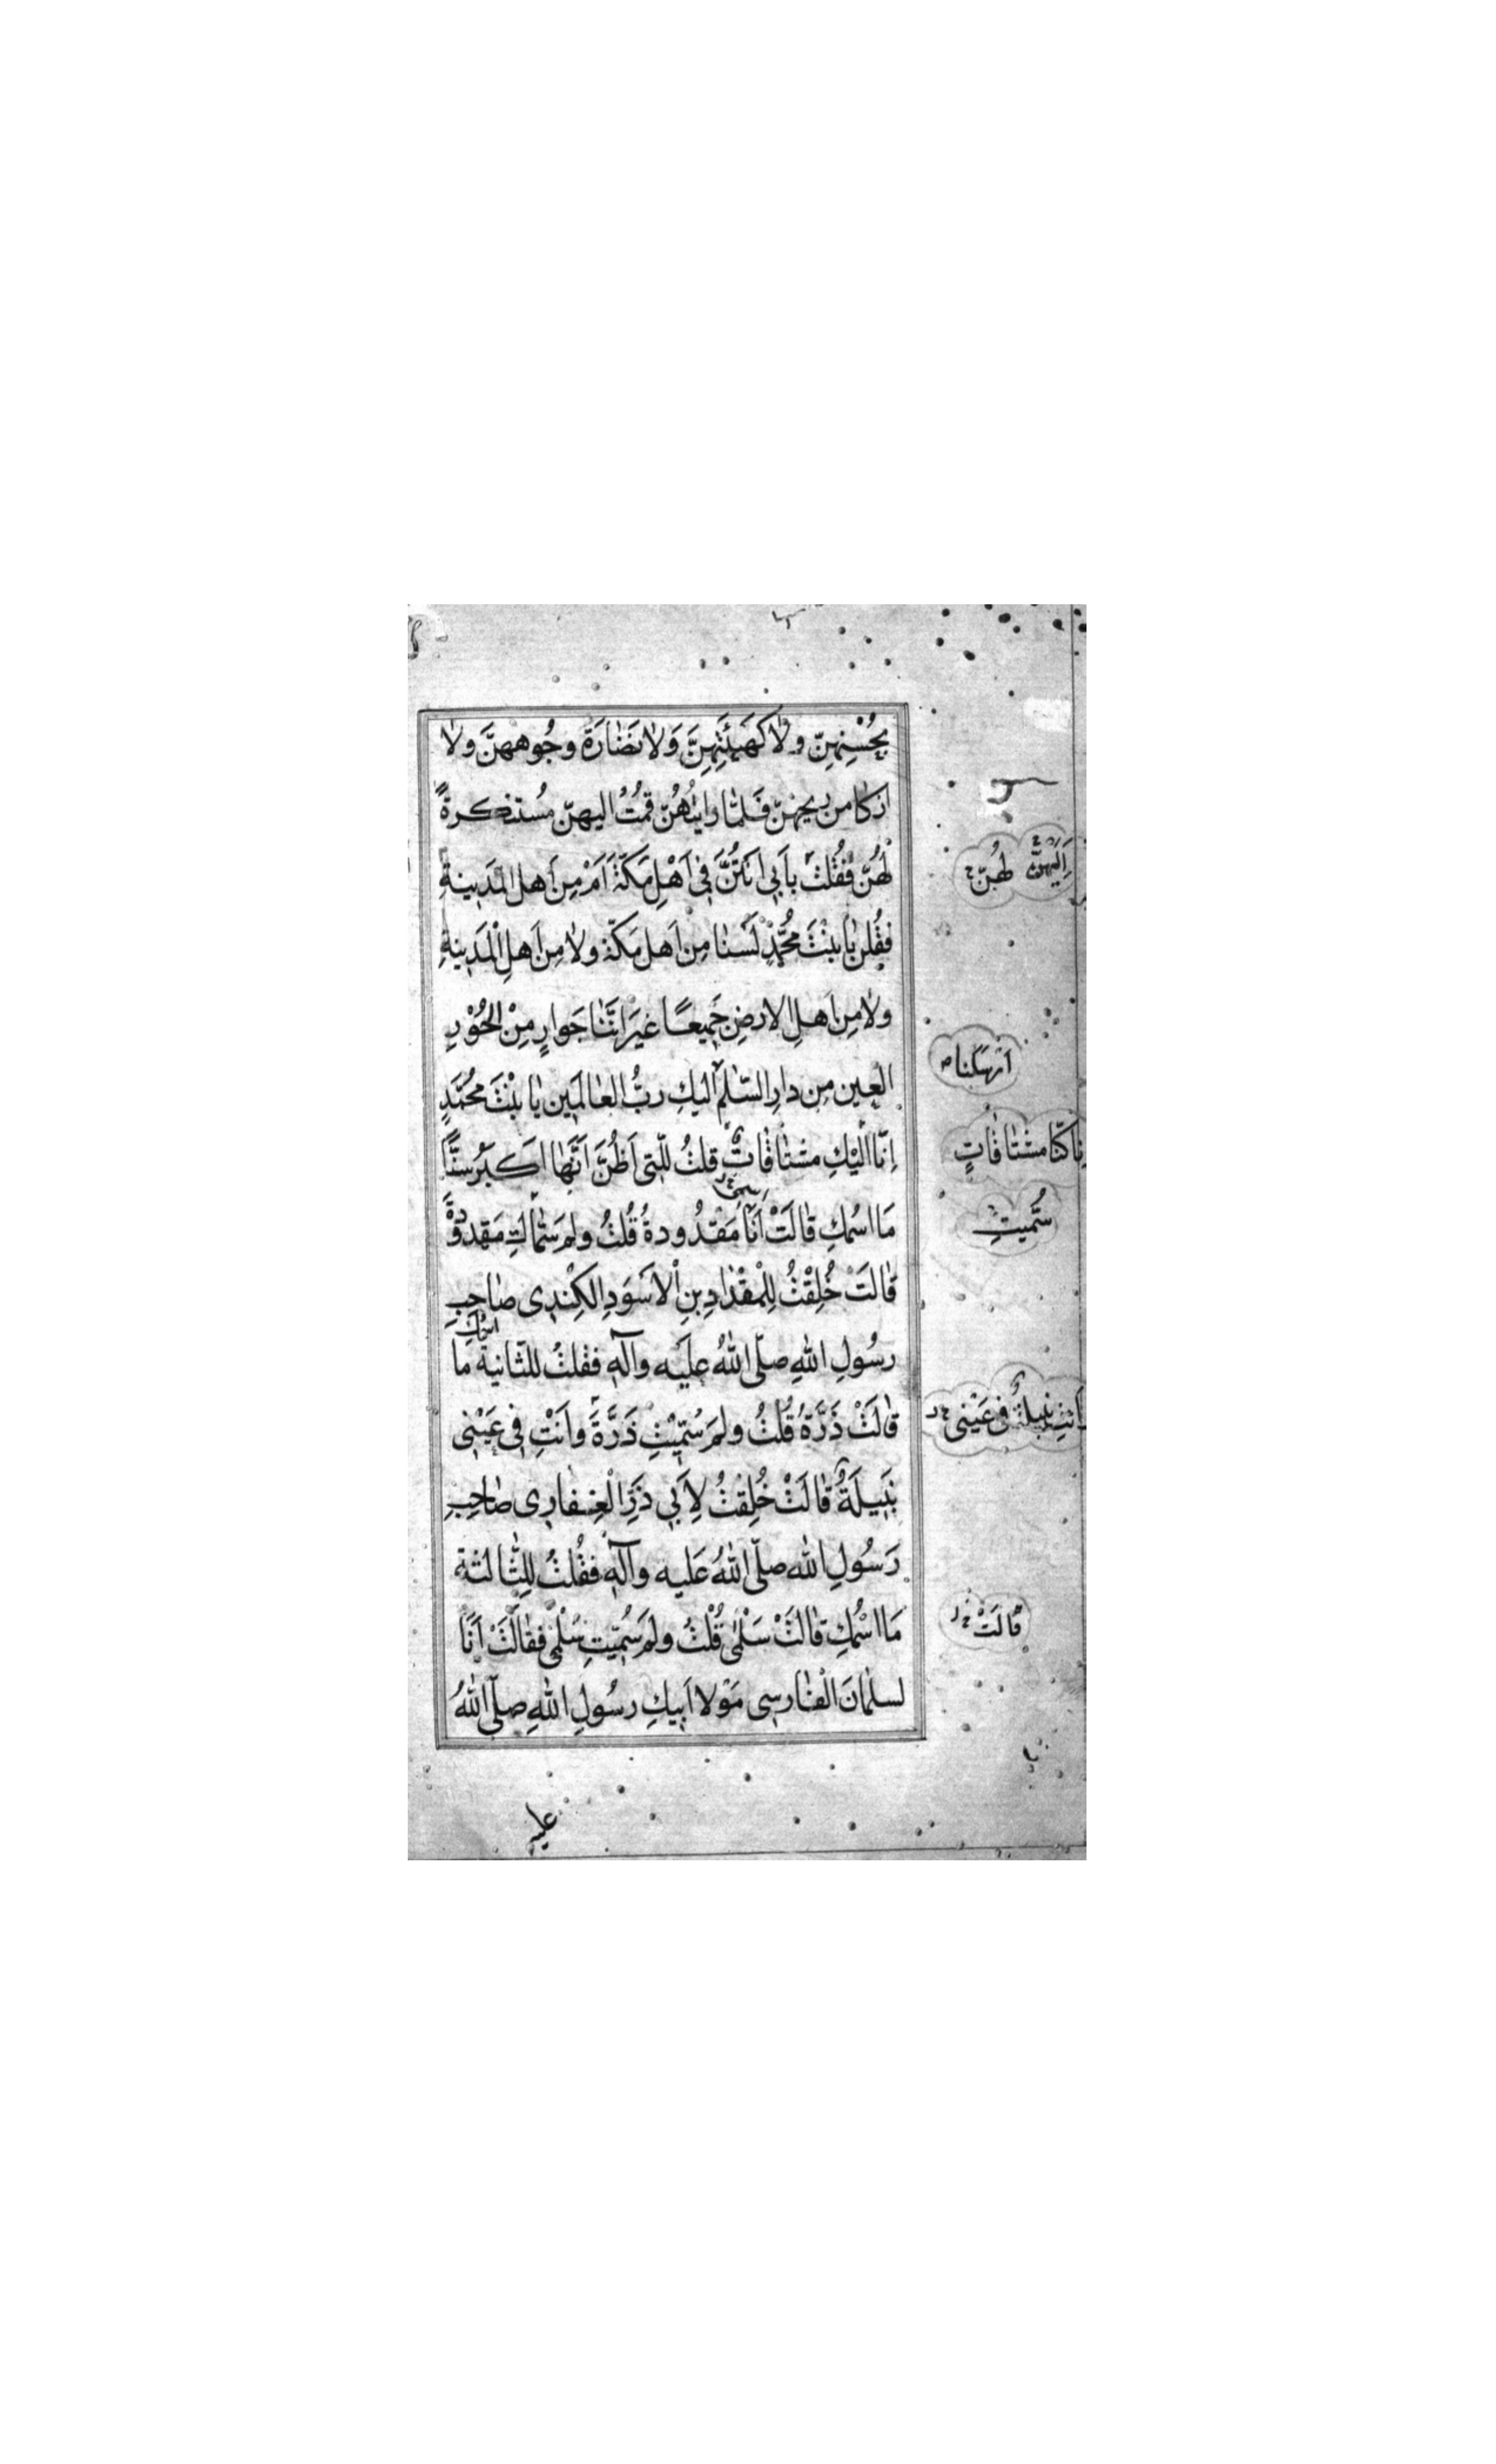 بِحُسْنِهِنَّ وَلَا كَهَيْئَتِهِنَّ وَلَا نَضَارَةَ وُجُوهِهِنَّ وَلَا
ازكا من ريحهنّ فَلمّا رايتُهُنّ قمْتُ اليهنّ مُستنكرةً
لَهُنَّ فَقُلْتُ بِاَبِى اَنْتُنَّ مِنْ اَهْلِ مَكَّةَ اَمْ مِنْ اَهلِ المَدَينةِ
فقُلن يا بنْتَ مُحَمَّدٍ لَسْنا مِن اَهل مكّة ولا مِن اَهلِ الْمَدَينةِ
ولا مِن اَهلِ الارضِ جَميعًا غيرَ اَنَّنا جَوارٍ مِنْ الحُوْرِ
العين من دارِ السّلمِ اليكِ ربُّ العالمَين يا بنْتَ مُحَمَّدٍ
اِنّا اليْكِ مشتاقاتٌ قلتُ للّتى اَظُنّ اَنّها اكبرُ سنًّا
مَا اسْمُكِ قالَتْ اَنَا مَقدُودةُ قُلتُ ولم سُمّيتِ مَقدودَةً
قالَتْ خُلِقْتُ لِلْمِقْدادِ بنِ الْاَسَوَدِ الكِنْدِى صاحِبِ
رسُولِ اللهِ صلّى اللهُ عليَه وآلهِ فقلتُ للثّانية ما اسمُكِ
قالَتْ ذَرَّةُ قُلتُ ولمَ سُمّيْتِ ذَرَّةَ وانَتْ فى عَيْنى
نَبيلَةٌ قالَتْ خُلِقتُ لِاَبى ذَرّ الْغِفارِى صاحِبِ
رَسُولِ الله صلّى اللهُ عَليه وآلهِ فقُلتُ لِلثّالثة
مَا اسْمُكِ قالتْ سَلْمى قُلْتُ ولمَ سُمّيتِ سَلْمى فقالَتْ اَنَا
لسلمانَ الْفارسى مَوْلا اَبيكِ رسُولِ اللهِ صلّى اللهُ
عليه
اِلَيْهِنَّ لَهُنّ
اَرسَلَنا
اِنا كنّا مشتاقاتٍ
سُمّيتِ
انتِ نبيلةٌ فى عَيْنى
قالَتْ